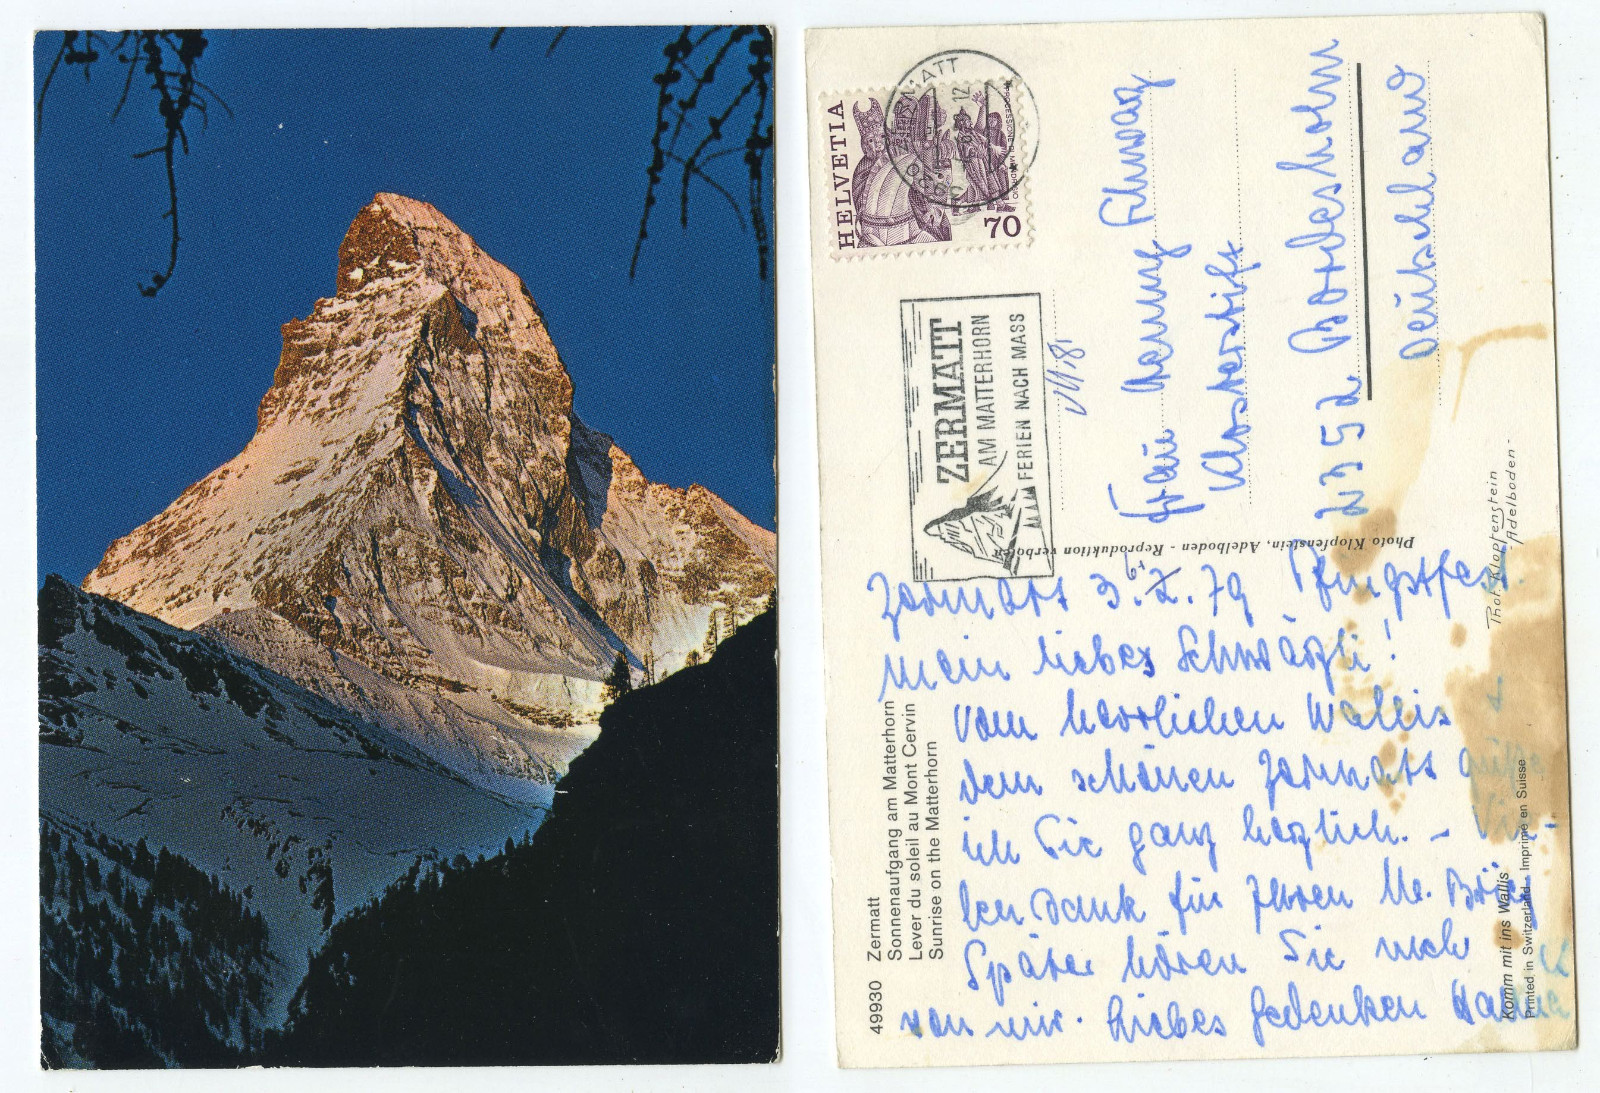 HELVETIA
70
3920 ZERMATT
12
ZERMATT
AM MATTERHORN
FERIEN NACH MASS
Frau Henny Schwarz
Klosterstift
2352 Bordesholm
Deutschland
Photo Klopfenstein, Adelboden - Reproduktion verboten
Phot. Klopfenstein
- Adelboden -
Zermatt 3. 79 Pfingstfest.
Mein liebes Schwärzli!
Vom herrlichen Wallis +
dem schönen Zermatt grüße
ich Sie ganz herzlich. - Vie-
len Dank für Ihren lb. Brief
Später hören Sie mehr
von mir. Liebes Gedenken Hanna
49930 Zermatt
Sonnenaufgang am Matterhorn
Lever du soleil au Mont Cervin
Sunrise on the Matterhorn
Komm mit ins Wallis
Printed in Switzerland - Imprimé en Suisse